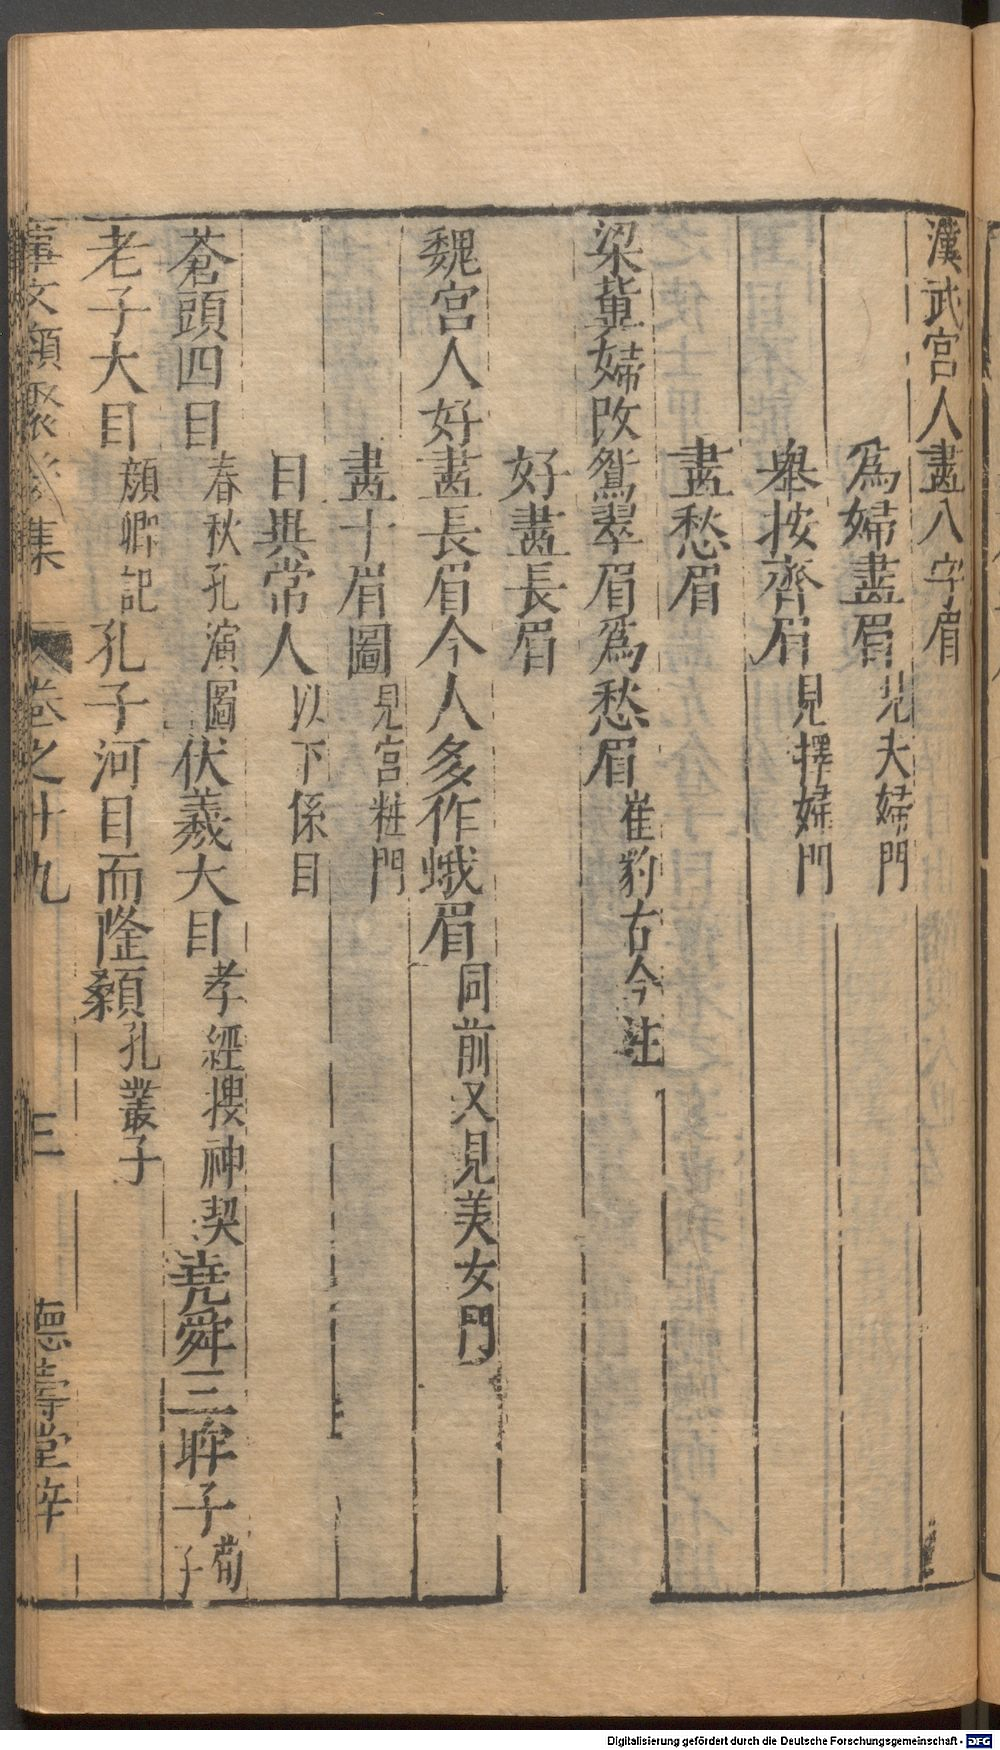 漢武宮人畫八字眉
爲婦畫眉見夫婦門
舉按齊眉見擇婦門
畫愁眉
梁冀婦改鴛翠眉爲愁眉崔豹古今注
好畫長眉
魏宮人好畫長眉今人多作蛾眉同前又見美女門
畫十眉圖見宮粧門
目與常人以下係目
蒼頭四目春秋孔演圖伏羲大目孝經援神契堯舜三眸子荀子
老子大目顏卿記孔子河目而隆顙孔叢子
事文類聚 集 卷之十九 三 德壽堂梓
Digitalisierung gefördert durch die Deutsche Forschungsgemeinschaft - DFG